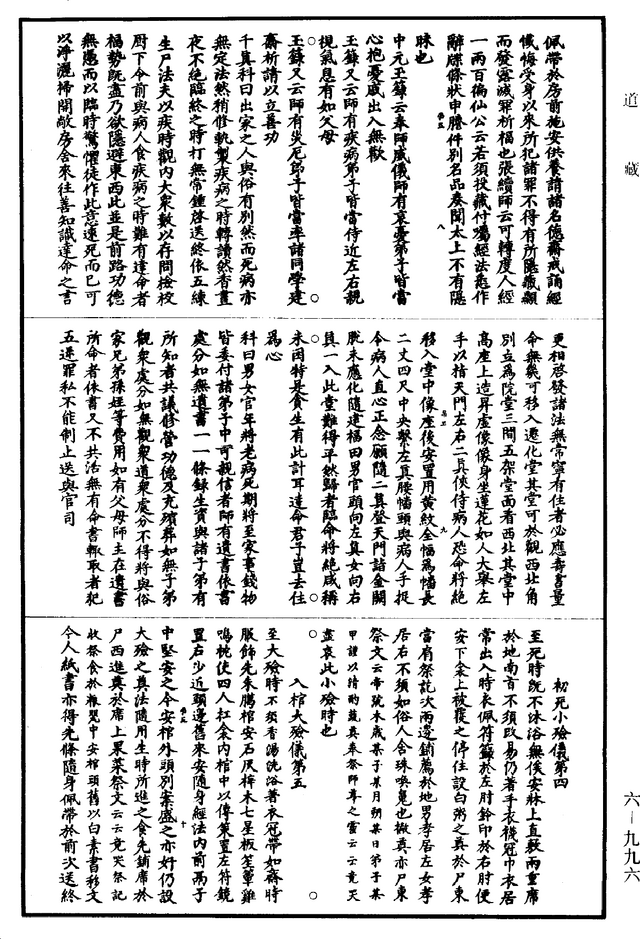 道藏
佩帶於房前施安供養請諸名德齋戒誦經
懺悔受身以來所犯諸罪不得有所隱藏顯
而發露滅罪祈福也張續師云可轉度人經
一兩百徧仙公云若須投藏付囑經法悉作
辭牒條狀申謄件別名品奏聞太上不有隱
昧也
中元玉籙云奉師威儀師有哀憂弟子皆當
心抱憂慼出入無歡
玉籙又云師有疾病弟子皆當侍近左右親
視氣息有如父母
玉籙又云師有災厄弟子皆當率諸同學建
齋祈請以立善功
千真科曰出家之人與俗有別然而死病亦
無定法然稍修軌製疾病之時轉讀然香晝
夜不絕臨終之時打無常鍾啓送終依五練
生尸法夫以疾時觀內大衆數以存問檢校
厨下令前與病人食疾病之時難有達命者
福勢既盡乃欲隱避東西此並是前路功德
無憑而以臨時驚懼徒作此意速死而已可
以淨灑掃開敞房舍來往善知識達命之言
更相啓發諸法無常寧有住者必應壽者量
命無幾可移入遷化堂其堂可於觀西北角
別立爲院堂三間五架堂面看西北其堂中
高座上造昇虛像像身坐蓮花如人大舉左
手以指天門左右二真俠侍病人恐命將絕
移入堂中像座後安置用黃紋全幅爲幡長
二丈四尺中央繫左真腰幡頭與病人手捉
令病人直心正念願隨二真登天門詣金闕
脫未應化隨建福田男官頭向左真女向右
真一入此堂難得平然歸者臨命將絕咸稱
未困特是貪生有此計耳達命君子豈去住
爲心
科曰男女官年將老病死期將至家事錢物
皆委付諸弟子中可親信者師有遺書依書
處分如無遺書一一條錄生資與諸子弟有
所知者共議修營功德及充殯葬如無子弟
觀衆處分如無觀衆道衆處分不得將與俗
家兄弟孫姪等費用如有父母師主在遺書
所命者依書又不共活無有命書輙取者犯
五逆罪私不能制止送與官司
初死小殮儀第四
至死時既不沐浴無俟安牀上直敷兩重席
於地南首不須改易仍著手衣襪冠巾衣居
常出入時衣佩符籙於左肘鈴印於右肘便
安下衾上被覆之停住設白粥之奠於尸東
當肩祭訖次兩邊鋪薦於地男孝居左女孝
居右不須如俗人含珠喚鬼也撤奠亦尸東
祭文云帝號本歲某子某月朔某日弟子某
甲謹以清酌蔬奠奉祭師尊之靈云云竟哭
盡哀此小殮時也
入棺大殮儀第五
至大殮時不須香湯洗浴著衣冠帶如齋時
服飾先朱騰棺安石灰梓木七星板笙簟雞
鳴枕使四人扛衾內棺中以傳策置左符鏡
置右少近頭邊舊來安隨身經法內前鬲子
中堅安之今安棺外頭別案盛之亦好仍設
大殮之奠法隨用生時所進之食先鋪席於
尸西進奠於席上果菜祭文云云竟哭祭訖
收祭食於甖中安棺頭舊以白素書移文
今人紙書亦得先條隨身佩帶於前次送終
六一九九六